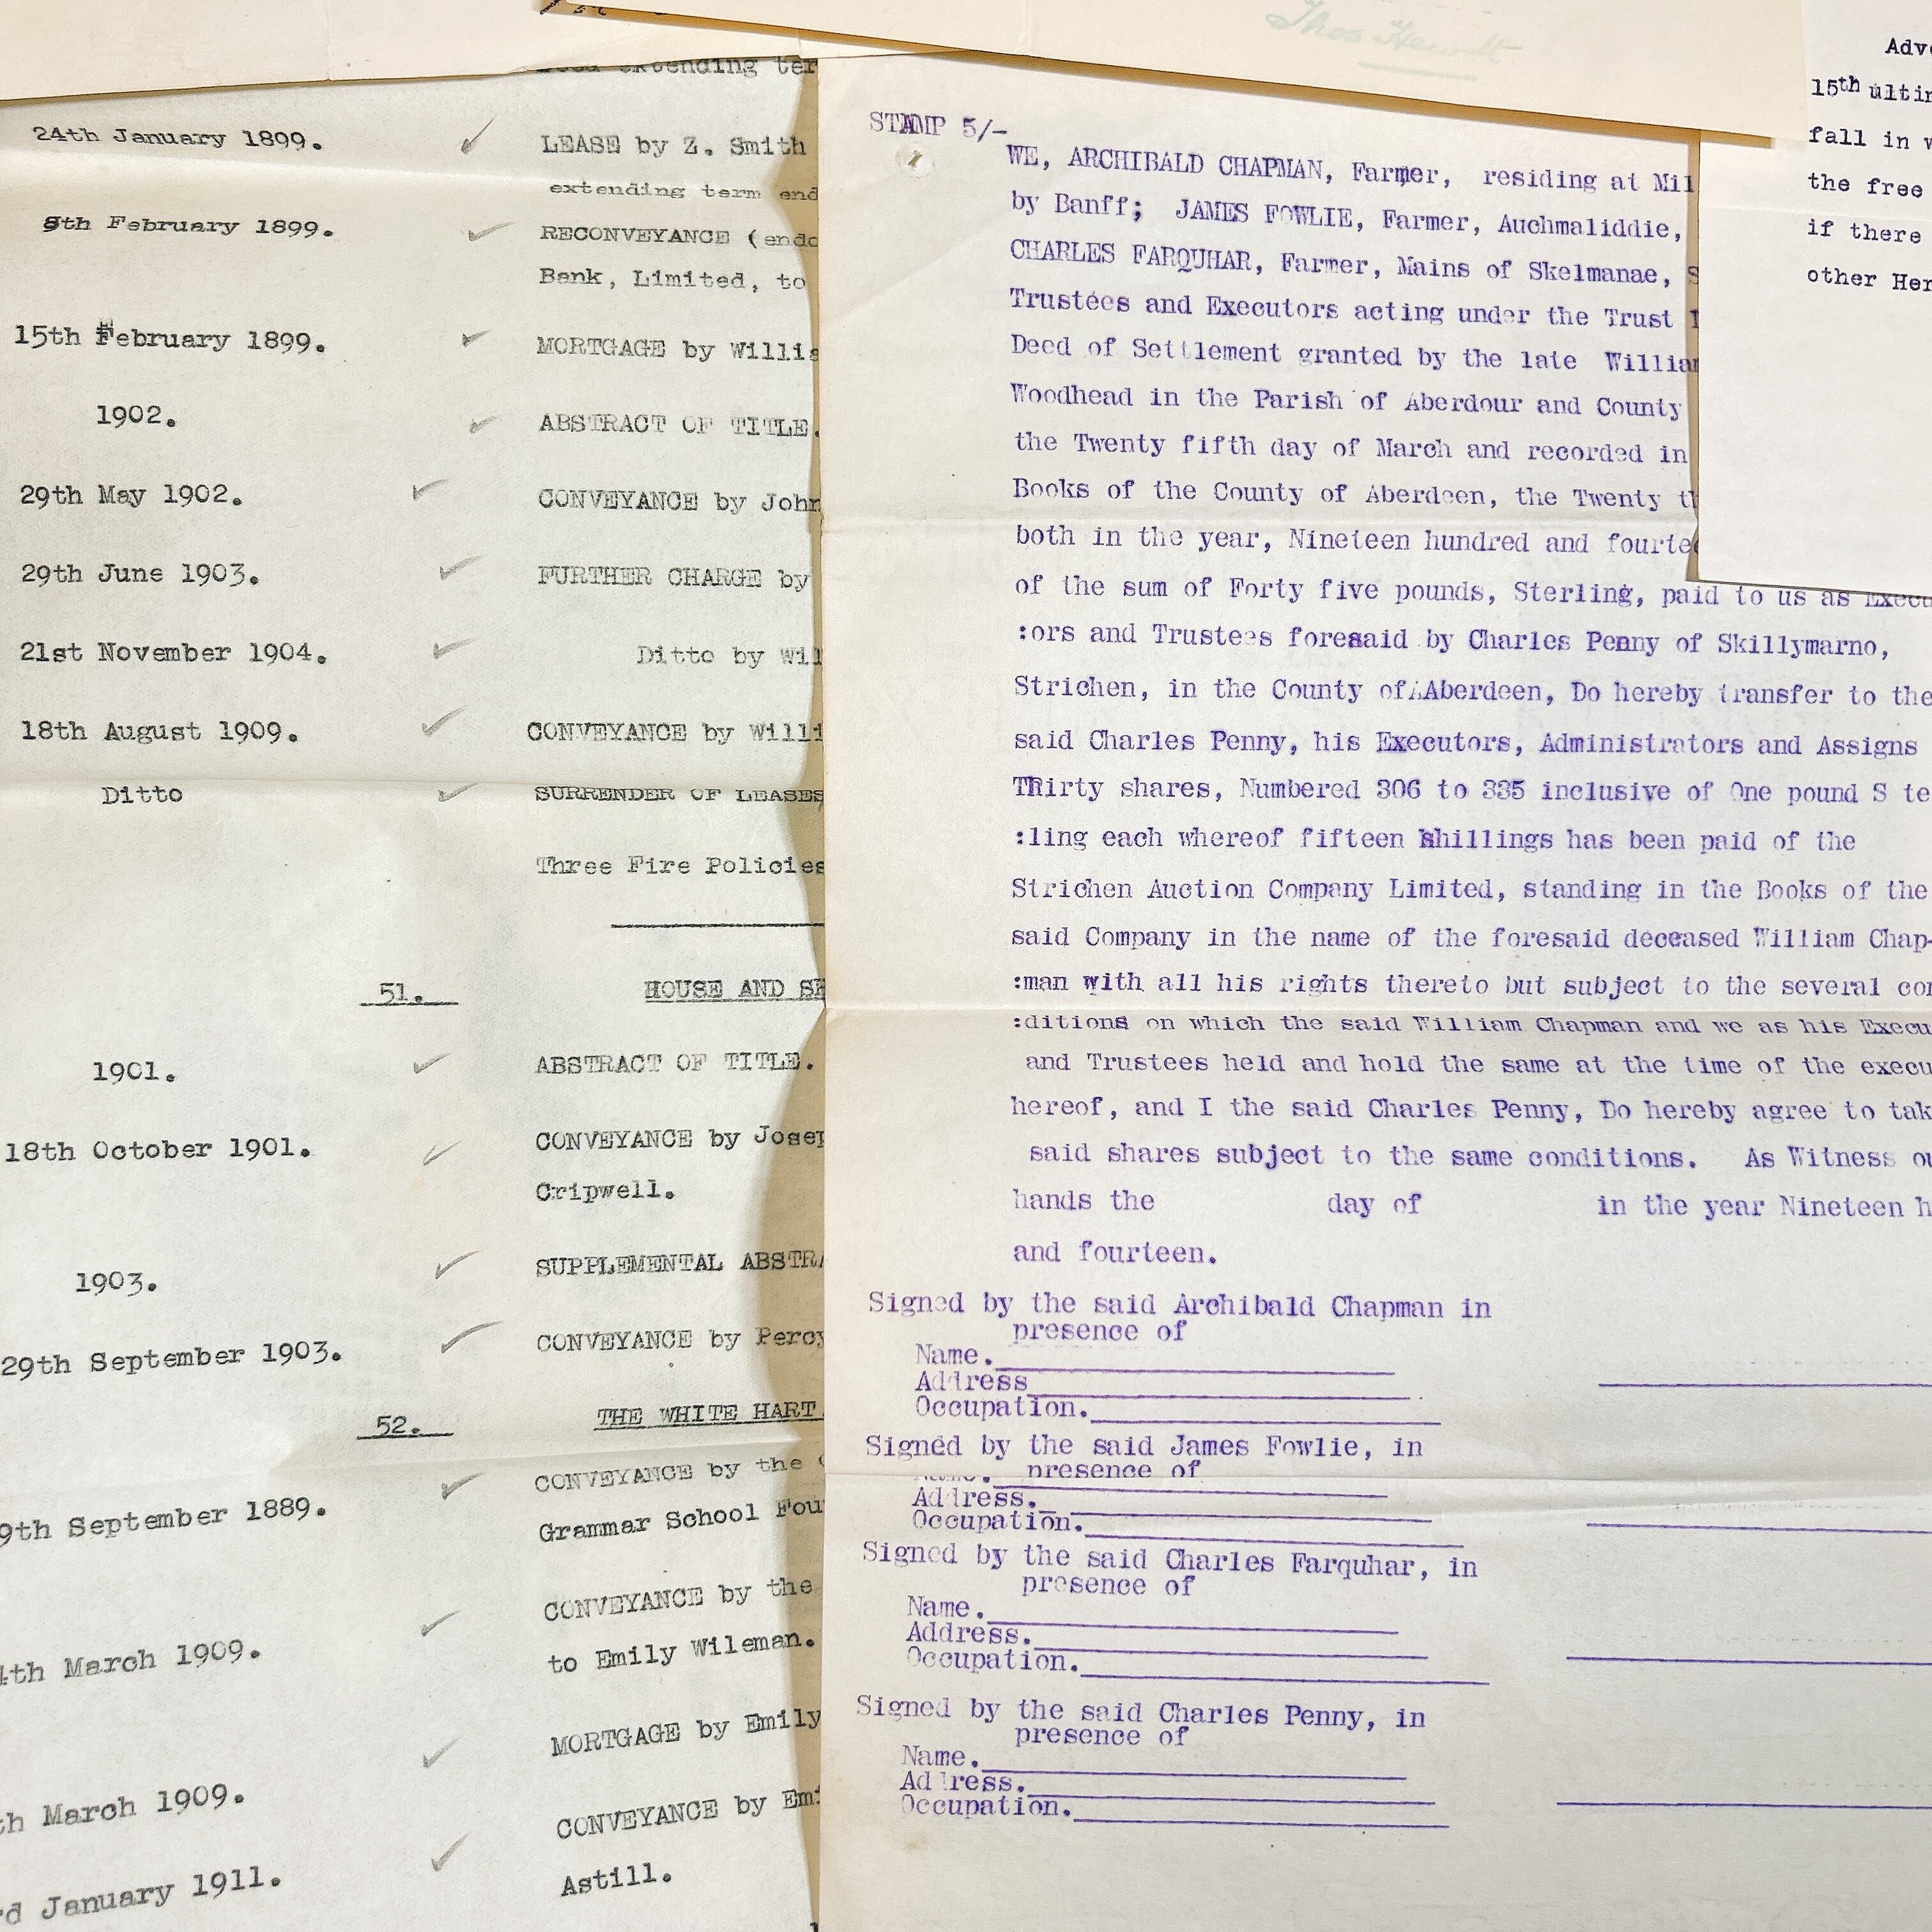 Thos Hewitt
extending ter
24th January 1899.
LEASE by Z. Smith
extending term end
8th February 1899.
RECONVEYANCE (endo
Bank, Limited, to
15th February 1899.
MORTGAGE by Willia
1902.
ABSTRACT OF TITLE.
29th May 1902.
CONVEYANCE by John
29th June 1903.
FURTHER CHARGE by
21st November 1904.
Ditto by Wil
18th August 1909.
CONVEYANCE by Willi
Ditto
SURRENDER OF LEASES
Three Fire Policies
51.
HOUSE AND SH
1901.
ABSTRACT OF TITLE.
18th October 1901.
CONVEYANCE by Josep
Cripwell.
1903.
SUPPLEMENTAL ABSTRA
29th September 1903.
CONVEYANCE by Percy
52.
THE WHITE HART
9th September 1889.
CONVEYANCE by the
Grammar School Fou
4th March 1909.
CONVEYANCE by the
to Emily Wileman.
th March 1909.
MORTGAGE by Emily
rd January 1911.
CONVEYANCE by Emi
Astill.
STAMP 5/-
WE, ARCHIBALD CHAPMAN, Farmer, residing at Mil
by Banff; JAMES FOWLIE, Farmer, Auchmaliddie,
CHARLES FARQUHAR, Farmer, Mains of Skelmanae, S
Trustees and Executors acting under the Trust
Deed of Settlement granted by the late William
Woodhead in the Parish of Aberdour and County
the Twenty fifth day of March and recorded in
Books of the County of Aberdeen, the Twenty th
both in the year, Nineteen hundred and fourtee
of the sum of Forty five pounds, Sterling, paid to us as Execu
:ors and Trustees foresaid by Charles Penny of Skillymarno,
Strichen, in the County of Aberdeen, Do hereby transfer to the
said Charles Penny, his Executors, Administrators and Assigns
Thirty shares, Numbered 306 to 335 inclusive of One pound S te
:ling each whereof fifteen shillings has been paid of the
Strichen Auction Company Limited, standing in the Books of the
said Company in the name of the foresaid deceased William Chap-
:man with all his rights thereto but subject to the several con
:ditions on which the said William Chapman and we as his Execu
and Trustees held and hold the same at the time of the execu
hereof, and I the said Charles Penny, Do hereby agree to tak
said shares subject to the same conditions. As Witness ou
hands the day of in the year Nineteen h
and fourteen.
Signed by the said Archibald Chapman in
presence of
Name.
Address
Occupation.
Signed by the said James Fowlie, in
Name. presence of
Address.
Occupation.
Signed by the said Charles Farquhar, in
presence of
Name.
Address.
Occupation.
Signed by the said Charles Penny, in
presence of
Name.
Address.
Occupation.
Adv
15th ultim
fall in w
the free
if there
other Her